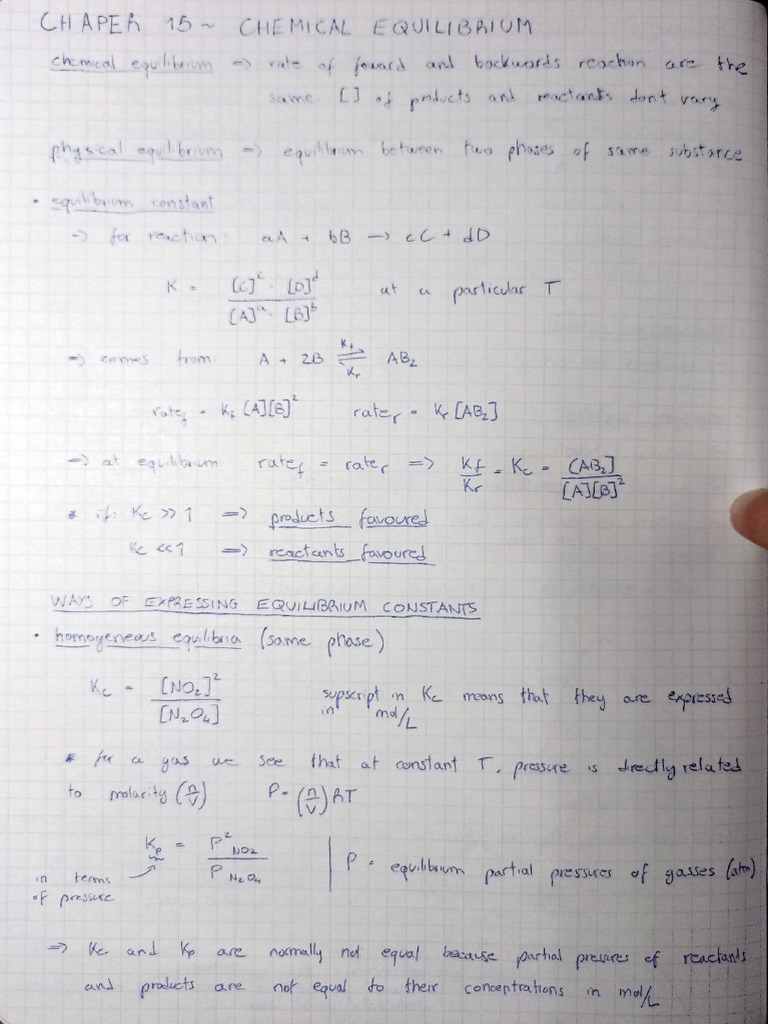 CHAPER 15 ~ CHEMICAL EQUILIBRIUM
chemical equilibrium => rate of foward and backwards reaction are the
same. [] of products and reactants dont vary
physical equilibrium => equilibrium between two phases of same substance
• equilibrium constant
=> for reaction: aA + bB → cC + dD
K = [C]^c · [D]^d / [A]^a · [B]^b at a particular T
=> comes from: A + 2B ⇌ AB₂ (Kf, Kr)
rate_f = Kf [A][B]² rate_r = Kr [AB₂]
=> at equilibrium: rate_f = rate_r => Kf/Kr = Kc = [AB₂]/[A][B]²
* if: Kc >> 1 => products favoured
Kc << 1 => reactants favoured
WAYS OF EXPRESSING EQUILIBRIUM CONSTANTS
• homogeneous equilibria (same phase)
Kc = [NO₂]² / [N₂O₄] supscript in Kc means that they are expressed
in mol/L
* for a gas we see that at constant T, pressure is directly related
to molarity (n/V) P = (n/V) RT
Kp = P²NO₂ / P N₂O₄ | P = equilibrium partial pressures of gasses (atm)
in terms
of pressure
=> Kc and Kp are normally not equal because partial pressures of reactands
and products are not equal to their concentrations in mol/L